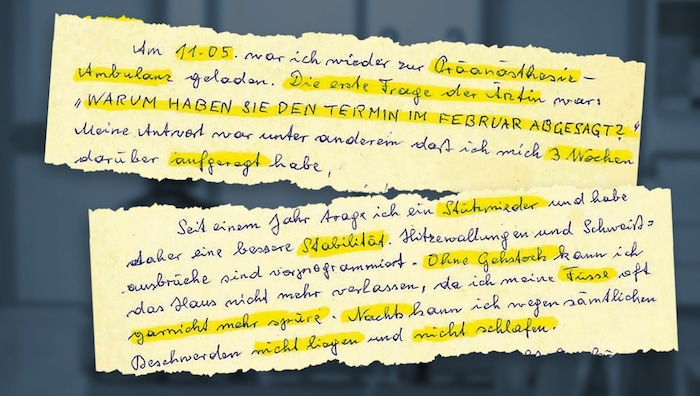 Am 11.05. war ich wieder zur Präanästhesie-
Ambulanz geladen. Die erste Frage der Ärztin war:
"WARUM HABEN SIE DEN TERMIN IM FEBRUAR ABGESAGT?"
Meine Antwort war unter anderem daß ich mich 3 Wochen
darüber aufgeregt habe,
Seit einem Jahr trage ich ein Stützmieder und habe
daher eine bessere Stabilität. Hitzewallungen und Schweiß=
ausbrüche sind vorprogrammiert. Ohne Gehstock kann ich
das Haus nicht mehr verlassen, da ich meine Füsse oft
garnicht mehr spüre. Nachts kann ich wegen sämtlichen
Beschwerden nicht liegen und nicht schlafen.